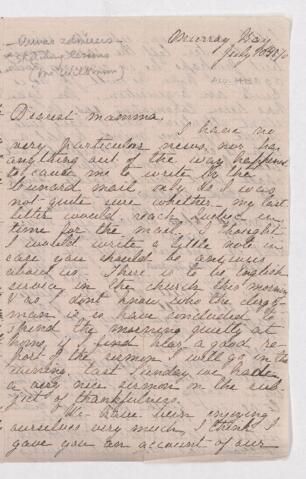 Murray Bay
July 10 1870
Dearest Mamma.
I have no
very particular news, nor has
anything out of the way happened
to cause me to write by the
mail, only as I was
not quite sure whether my last
letter would reach in
time for the mail, I thought
I would write a little note in
case you should be anxious
about us. There is to be English
service in the church this morning
I don't know who the clergy-
man is so have concluded to
spend the morning quietly at
home, & if I find hear a good re-
port of the sermon I will go in the
evening. Last Sunday we had
a very nice sermon on the sub-
ject of thankfulness.
We have been enjoying
ourselves very much, I think I
gave you an account of our